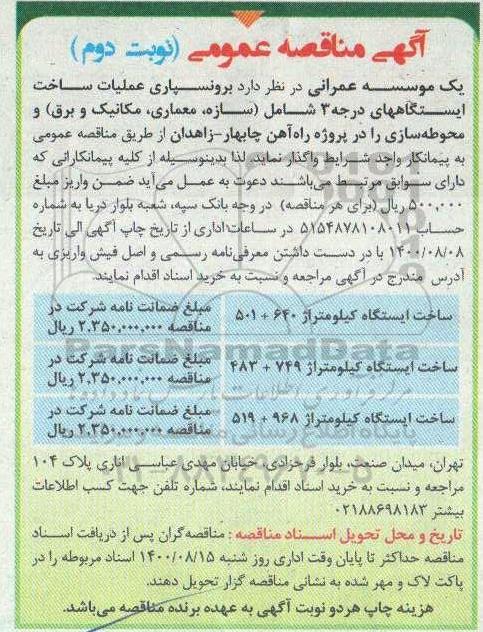 آگهی مناقصه عمومی (نوبت دوم)
یک موسسه عمرانی در نظر دارد برونسپاری عملیات ساخت
ایستگاههای درجه۳ شامل (سازه، معماری، مکانیک و برق) و
محوطه‌سازی را در پروژه راه‌آهن چابهار-زاهدان از طریق مناقصه عمومی
به پیمانکار واجد شرایط واگذار نماید. لذا بدینوسیله از کلیه پیمانکارانی که
دارای سوابق مرتبط می‌باشند دعوت به عمل می‌آید ضمن واریز مبلغ
۵۰۰,۰۰۰ ریال (برای هر مناقصه) در وجه بانک سپه، شعبه بلوار دریا به شماره
حساب ۵۱۵۴۸۷۸۱۰۸۰۱۱ در ساعات اداری از تاریخ چاپ آگهی الی تاریخ
۱۴۰۰/۰۸/۰۸ با در دست داشتن معرفی‌نامه رسمی و اصل فیش واریزی به
آدرس مندرج در آگهی مراجعه و نسبت به خرید اسناد اقدام نمایند.
ساخت ایستگاه کیلومتراژ ۶۴۰ + ۵۰۱
مبلغ ضمانت نامه شرکت در
مناقصه ۲.۳۵۰.۰۰۰.۰۰۰ ریال
ساخت ایستگاه کیلومتراژ ۷۴۹ + ۴۸۳
مبلغ ضمانت نامه شرکت در
مناقصه ۲.۳۵۰.۰۰۰.۰۰۰ ریال
ساخت ایستگاه کیلومتراژ ۹۶۸ + ۵۱۹
مبلغ ضمانت نامه شرکت در
مناقصه ۲.۳۵۰.۰۰۰.۰۰۰ ریال
ParsNamadData
تهران، میدان صنعت، بلوار فرحزادی، خیابان مهدی عباسی اناری پلاک ۱۰۴
مراجعه و نسبت به خرید اسناد اقدام نمایند، شماره تلفن جهت کسب اطلاعات
بیشتر ۰۲۱۸۸۶۹۸۱۸۳
تاریخ و محل تحویل اسناد مناقصه : مناقصه‌گران پس از دریافت اسناد
مناقصه حداکثر تا پایان وقت اداری روز شنبه ۱۴۰۰/۰۸/۱۵ اسناد مربوطه را در
پاکت لاک و مهر شده به نشانی مناقصه گزار تحویل دهند.
هزینه چاپ هر دو نوبت آگهی به عهده برنده مناقصه می‌باشد.